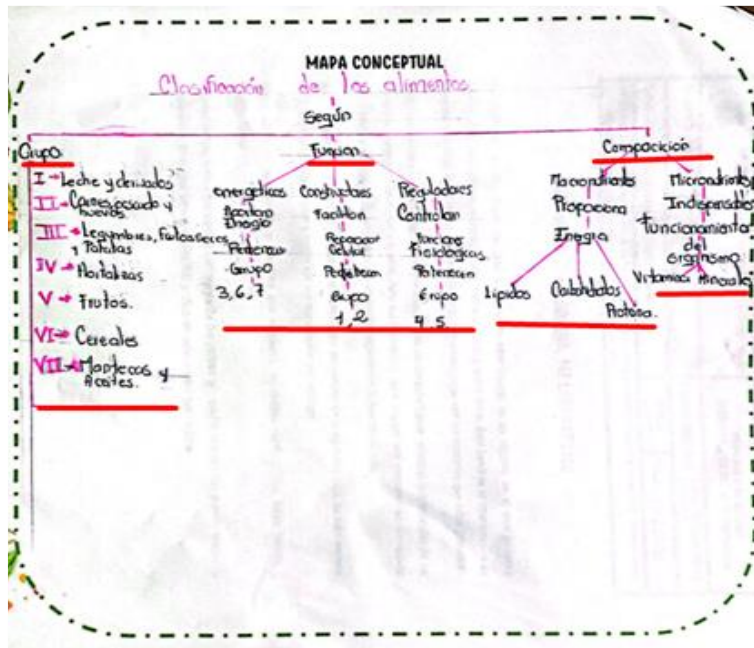 MAPA CONCEPTUAL
Clasificación de los alimentos
Según
Grupo
I → Leche y derivados
II → Carnes, pescado y
huevos
III → Legumbres, frutos secos
y Patatas
IV → Hortalizas
V → Frutos.
VI → Cereales
VII → Mantecas y
Aceites.
Función
energéticos
Aportan
Energía
Pertenecen
Grupo
3, 6, 7
Constructores
Facilitan
Reparación
Celular
Pertenecen
Grupo
1, 2
Reguladores
Controlan
Funciones
Fisiológicas
Pertenecen
Grupo
4 5
Composición
Macronutrientes
Proporciona
Energía
Lípidos
Carbohidratos
Proteína.
Micronutrientes
Indispensables
funcionamiento
del
organismo
Vitaminas
Minerales